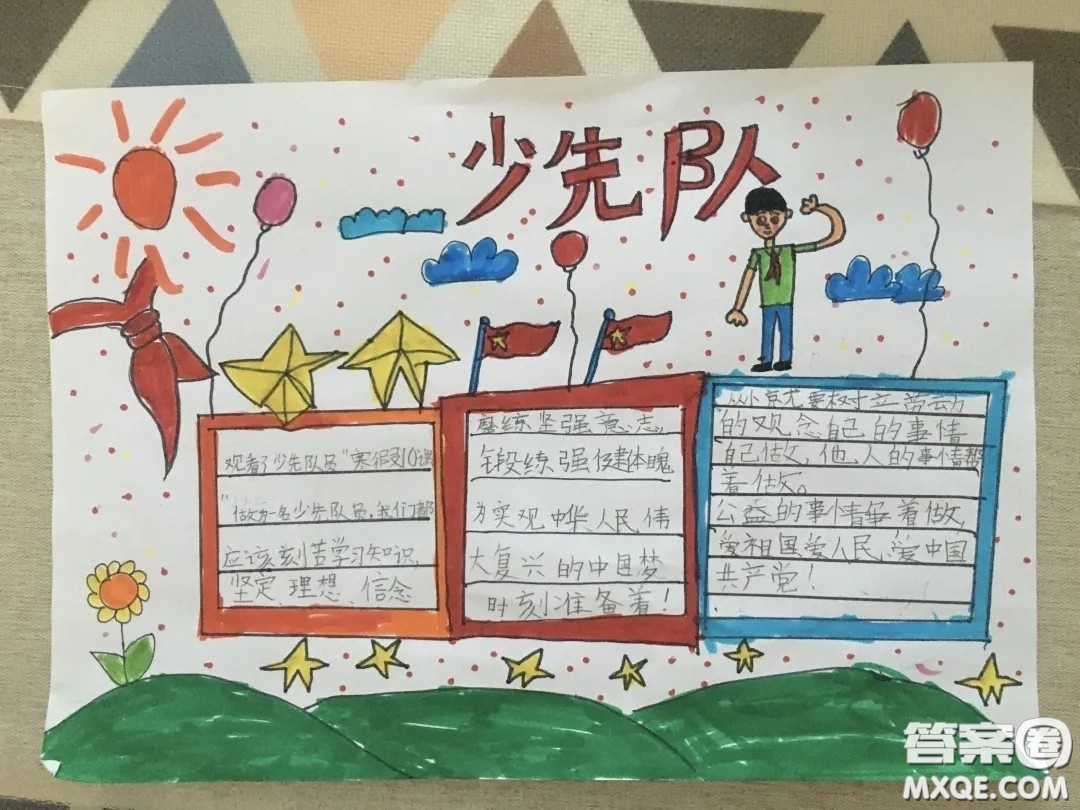 少先队
观看了少先队员"寒假到10课
"做为一名少先队员,我们都
应该刻苦学习知识,
坚定 理想 信念
磨练坚强意志,
锻练强健体魄
为实观中华人民伟
大复兴的中国梦
时刻准备着!
从小京尤要树立劳动
的观念自己的事情
自己做,他人的事情帮
着做。
公益的事情争着做,
爱祖国爱人民,爱中国
共产党!
答案圈
MXQE.COM